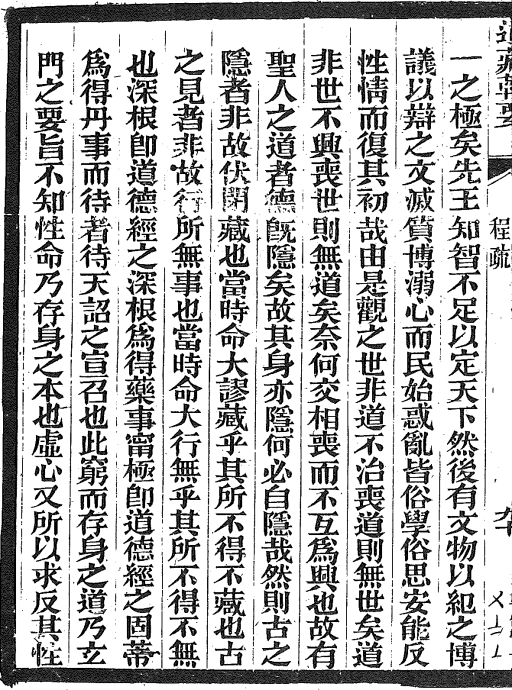 道藏輯要
程疏
一之極矣先王知智不足以定天下然後有文物以紀之博
議以辯之文滅質博溺心而民始惑亂皆俗學俗思安能反
性情而復其初哉由是觀之世非道不治喪道則無世矣道
非世不興喪世則無道矣奈何交相喪而不互為興也故有
聖人之道者德旣隱矣故其身亦隱何必自隱哉然則古之
隱者非故伏閉藏也當時命大謬藏乎其所不得不藏也古
之見者非故行所無事也當時命大行無乎其所不得不無
也深根卽道德經之深根為得藥事甯極卽道德經之固蒂
為得丹事而待者待天詔之宣召也此窮而存身之道乃玄
門之要旨不知性命乃存身之本也虛心又所以求反其性